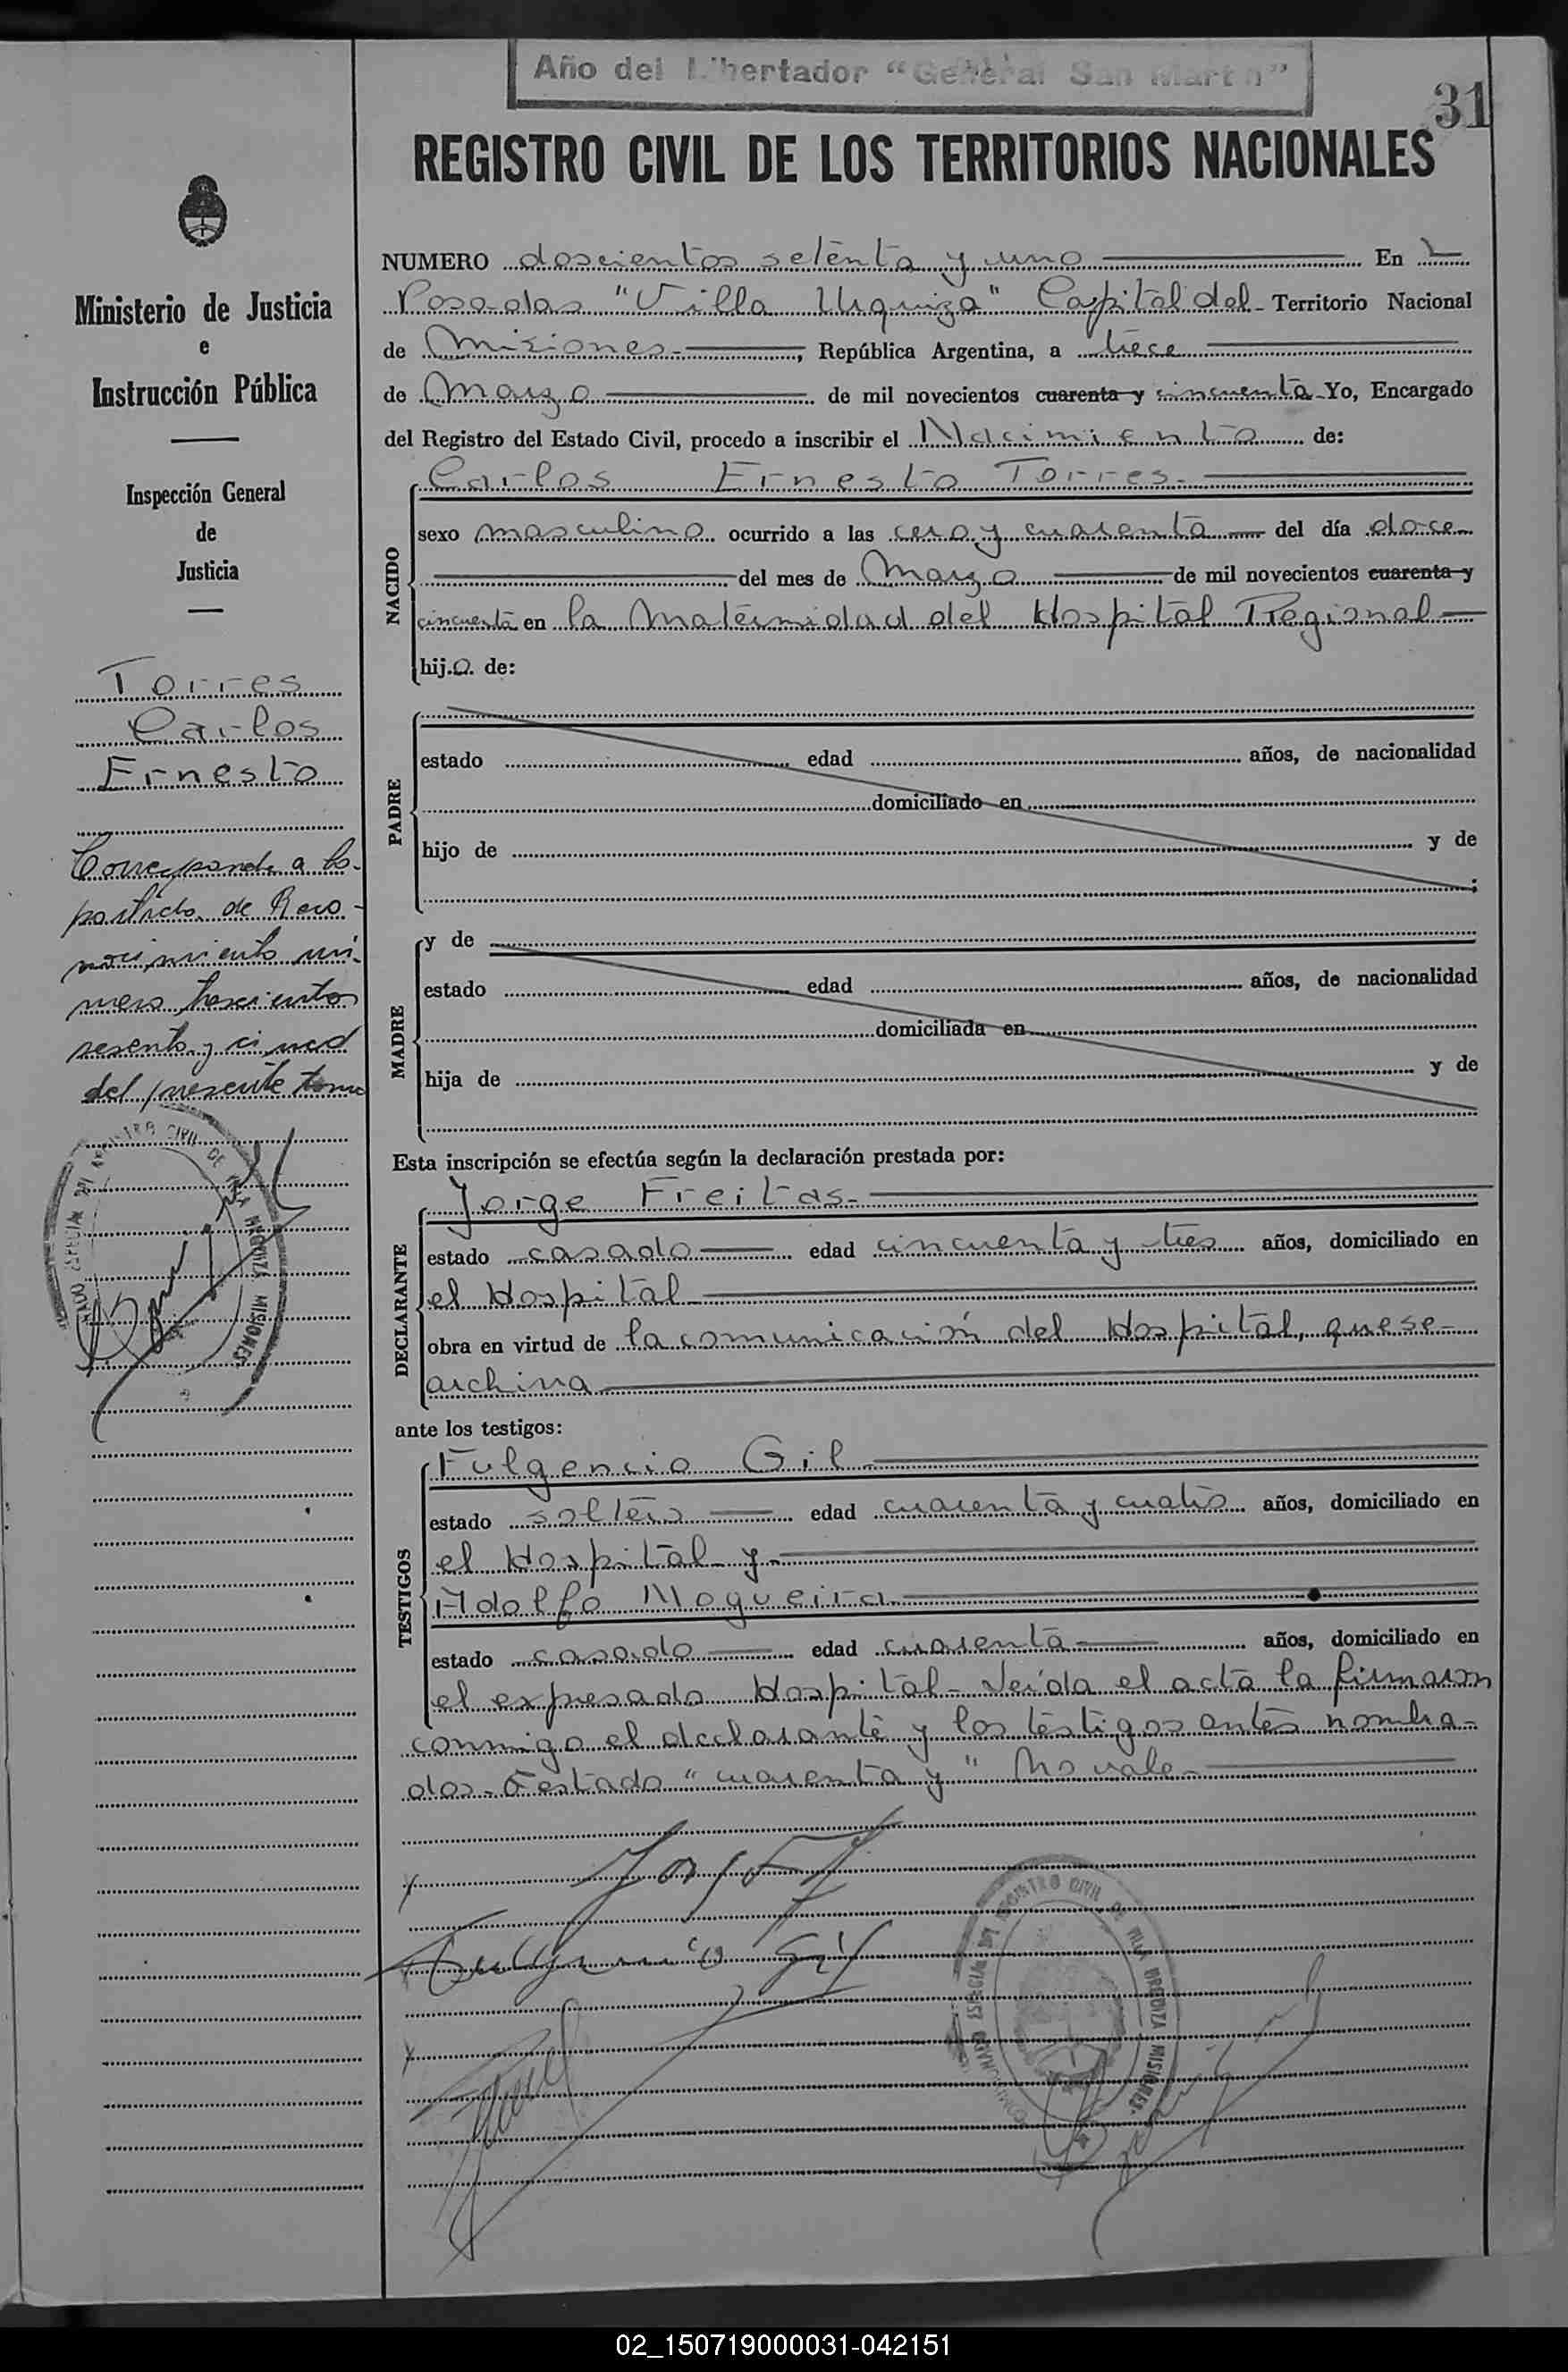 Año del Libertador "General San Martín"
31
REGISTRO CIVIL DE LOS TERRITORIOS NACIONALES
Ministerio de Justicia
e
Instrucción Pública
Inspección General
de
Justicia
Torres
Carlos
Ernesto
Corresponde a la
partida de Reco-
nocimiento nú-
mero trescientos
sesenta y cinco
del presente tomo
REGISTRO CIVIL DE VILLA URQUIZA MISIONES
NUMERO doscientos setenta y uno En
Posadas "Villa Urquiza" Capital del Territorio Nacional
de Misiones, República Argentina, a trece
de Marzo de mil novecientos cuarenta y cincuenta Yo, Encargado
del Registro del Estado Civil, procedo a inscribir el Nacimiento de:
NACIDO
Carlos Ernesto Torres.
sexo masculino ocurrido a las cero y cuarenta del día doce
del mes de Marzo de mil novecientos cuarenta y
cincuenta en la Maternidad del Hospital Regional
hij.o. de:
PADRE
estado edad años, de nacionalidad
domiciliado en
hijo de y de
;
MADRE
y de
estado edad años, de nacionalidad
domiciliada en
hija de y de
Esta inscripción se efectúa según la declaración prestada por:
DECLARANTE
Jorge Freitas.
estado casado edad cincuenta y tres años, domiciliado en
el Hospital
obra en virtud de la comunicación del Hospital, que se
archiva
ante los testigos:
TESTIGOS
Fulgencio Gil
estado soltero edad cuarenta y cuatro años, domiciliado en
el Hospital y
Adolfo Nogueira
estado casado edad cuarenta años, domiciliado en
el expresado Hospital - Leída el acta la firmaron
conmigo el declarante y los testigos antes nombra-
dos - Testado "cuarenta y" No vale
Fulgencio Gil
REGISTRO CIVIL DE VILLA URQUIZA - MISIONES
02_150719000031-042151